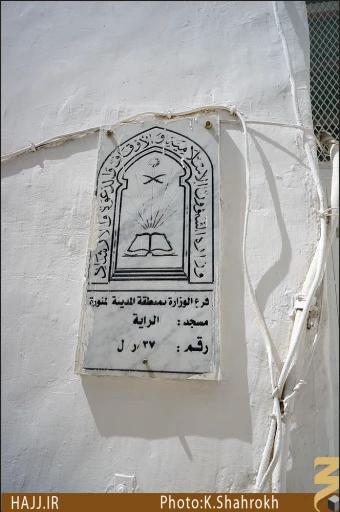 وزارة الشئون الإسلامية والأوقاف والدعوة والإرشاد
فرع الوزارة بمنطقة المدينة المنورة
مسجد : الراية
رقم : ٣٧/ر ل
HAJJ.IR
Photo:K.Shahrokh